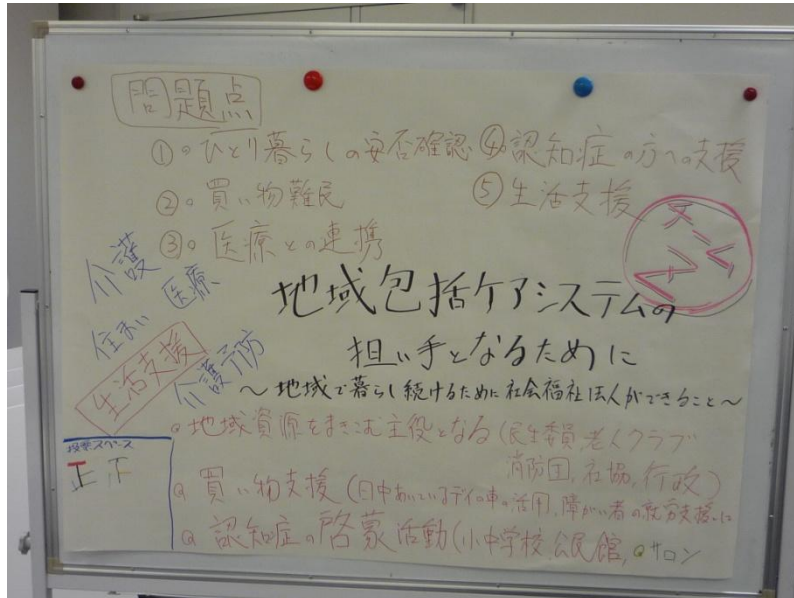 問題点
①。ひとり暮らしの安否確認
④。認知症の方への支援
②。買い物難民
⑤生活支援
③。医療との連携
介護
医療
住まい
生活支援
介護予防
地域包括ケアシステムの
担い手となるために
～地域で暮らし続けるために社会福祉法人ができること～
。地域資源をまきこむ主役となる(民生委員,老人クラブ
消防団,社協,行政)
。買い物支援(日中あいているデイの車の活用,障がい者の就労支援
。認知症の啓蒙活動(小中学校,公民館,。サロン
投票スペース
正